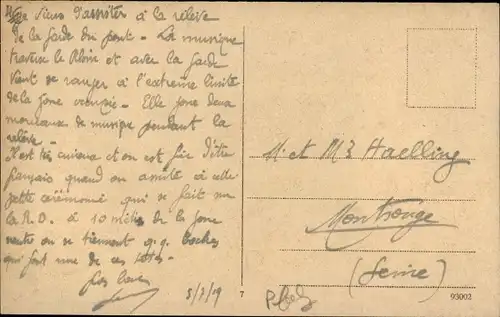 Je viens d'assister à la relève
de la garde du pont - La musique
traverse le Rhin et avec la garde
vient se ranger à l'extrême limite
de la zone - Elle joue deux
morceaux de musique pendant la
relève -
Il est très curieux et on est fier d'être
français quand on assiste à celle
cette cérémonie qui se fait sur
la R.D. à 10 mètres de la zone
neutre où se tiennent q.q. boches
qui font une de ces têtes -
5/7/19
M. et Mme Haelling
Montrouge
(Seine)
7
93002